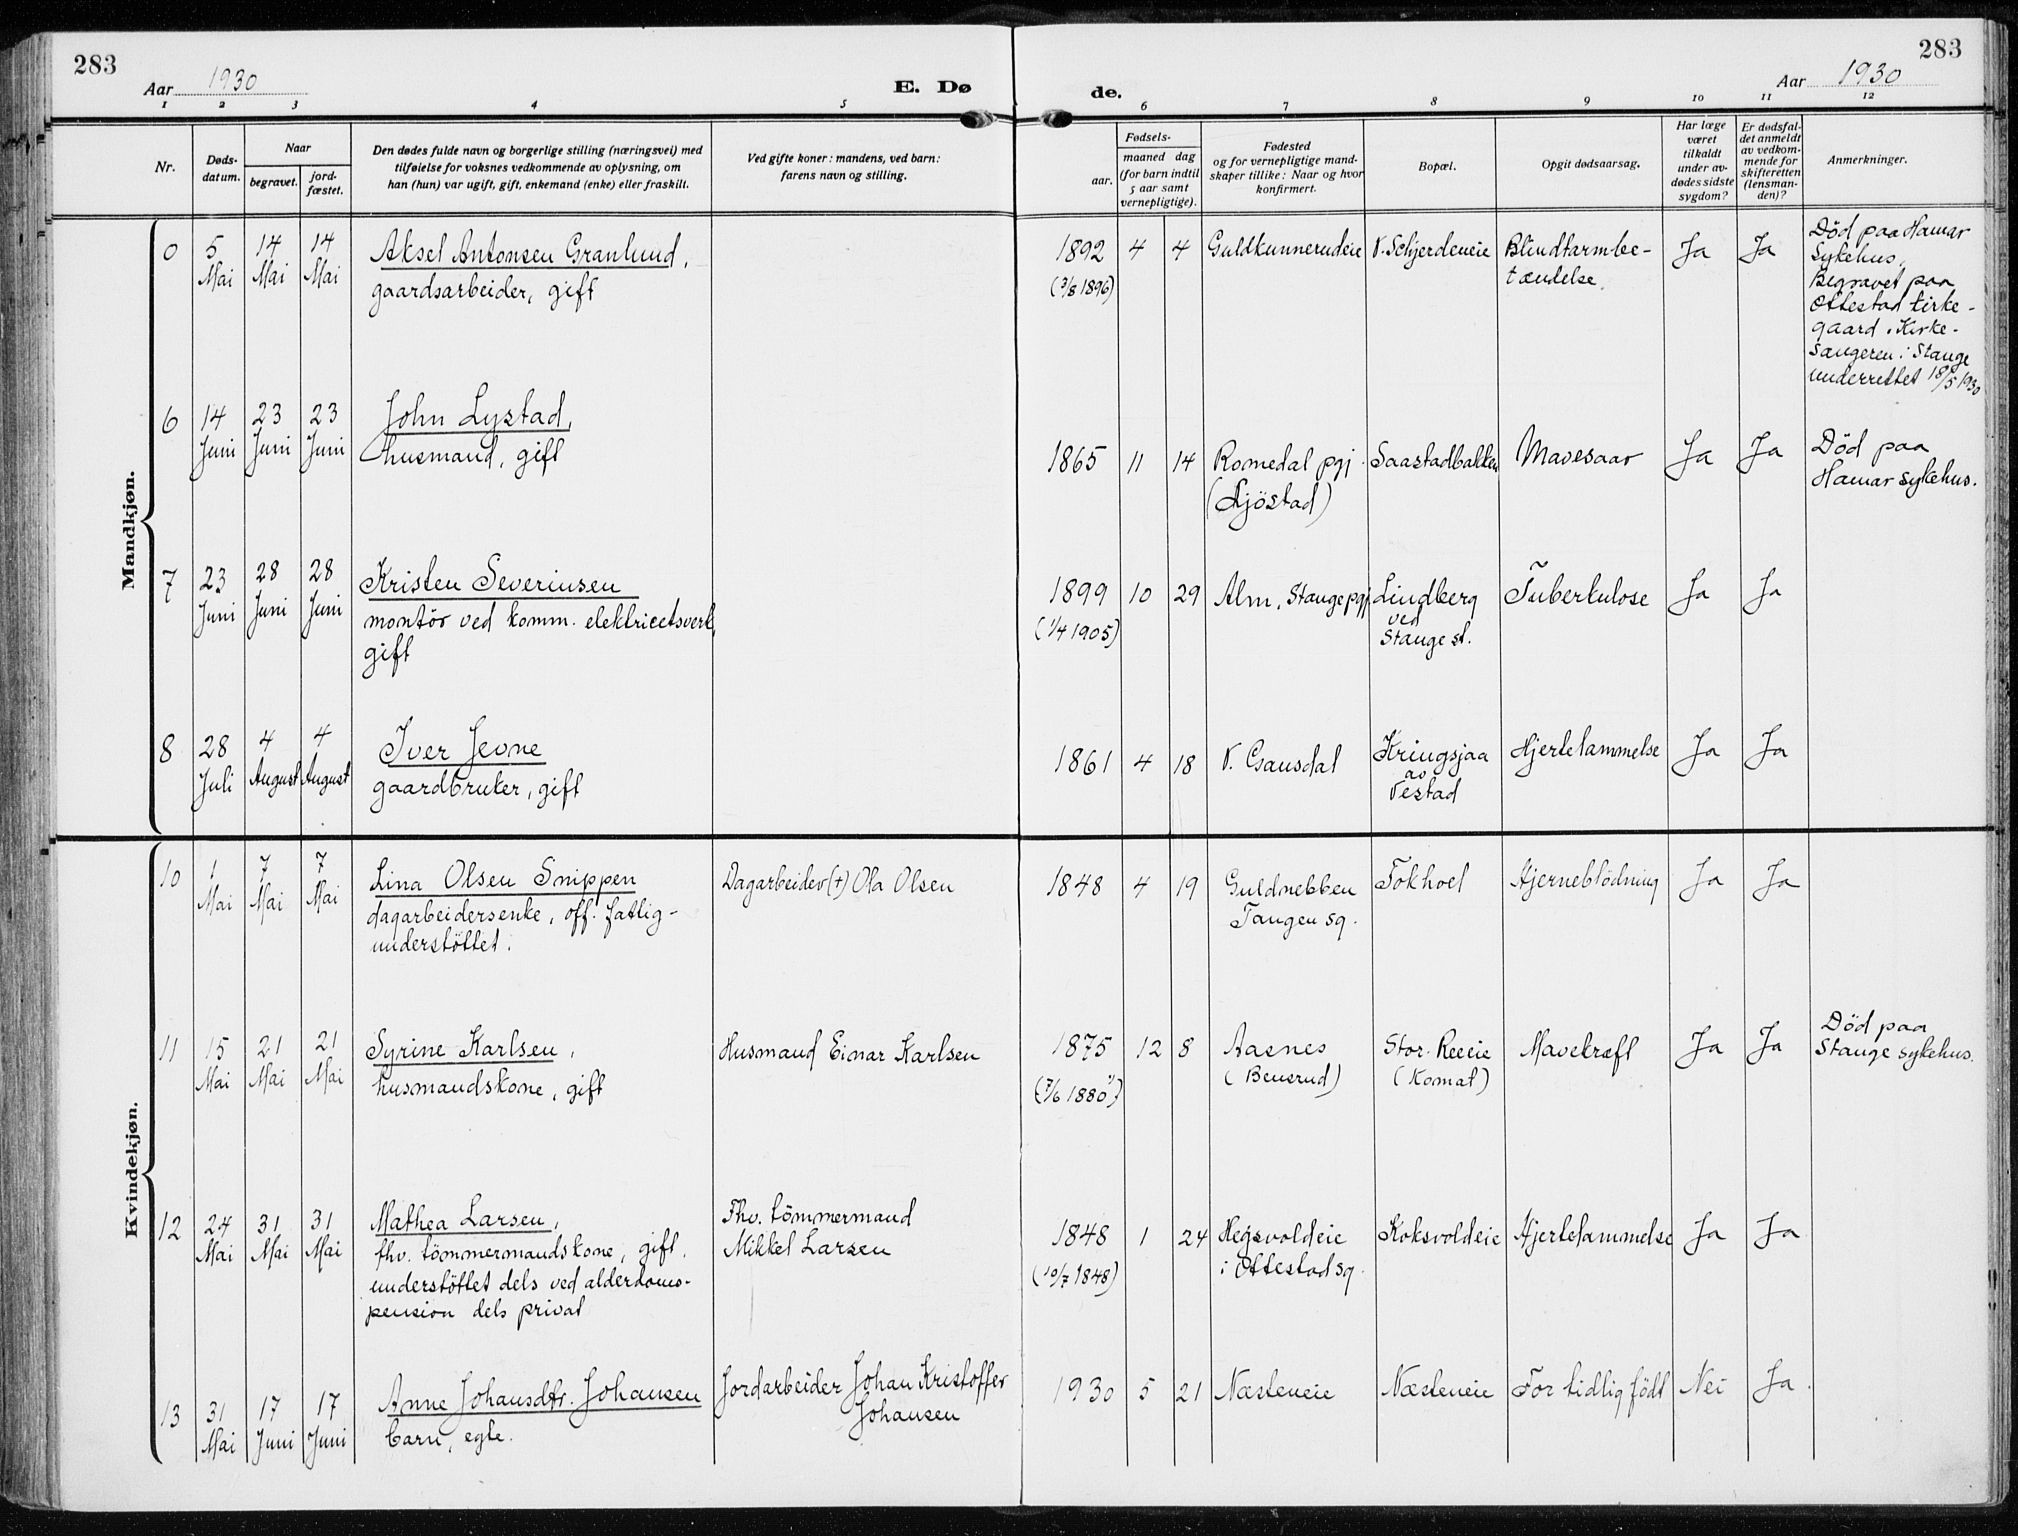 283
283
Aar 1930
E. Dø
de.
Aar 1930
1 2 3 4 5 6 7 8 9 10 11 12
Nr.
Døds-
datum.
Naar
begravet.
jord-
fæstet.
Den dødes fulde navn og borgerlige stilling (næringsvei) med
tilføielse for voksnes vedkommende av oplysning, om
han (hun) var ugift, gift, enkemand (enke) eller fraskilt.
Ved gifte koner: mandens, ved barn:
farens navn og stilling.
Fødsels-
aar.
maaned dag
(for barn indtil
5 aar samt
vernepligtige).
Fødested
og for vernepligtige mand-
skaper tillike: Naar og hvor
konfirmert.
Bopæl.
Opgit dødsaarsag.
Har læge
været
tilkaldt
under av-
dødes sidste
sygdom?
Er dødsfal-
det anmeldt
av vedkom-
mende for
skifteretten
(lensman-
den)?
Anmerkninger.
Mandkjøn.
0
5
Mai
14
Mai
14
Mai
Aksel Antonsen Granlund,
gaardsarbeider, gift
1892
(3/8 1896)
4 4
Guldkunnerudeie
V. Schjerdeneie
Blindtarmbe-
tændelse.
Ja
Ja
Død paa Hamar
Sykehus,
Begravet paa
Ottestad kirke-
gaard. Kirke-
sangeren i Stange
underrettet 18/5 1930
6
14
Juni
23
Juni
23
Juni
John Lystad,
husmand, gift
1865 11 14
Romedal pgj.
(Ljöstad)
Saastadbakken
Mavesaar
Ja
Ja
Död paa
Hamar sykehus.
7
23
Juni
28
Juni
28
Juni
Kristen Severinsen
montör ved komm. elektricetsverk,
gift
1899
(1/4 1905)
10 29
Alm, Stange pgj.
Lindberg
ved
Stange st.
Tuberkulose
Ja
Ja
8
28
Juli
4
August
4
August
Iver Jevne
gaardbruker, gift
1861 4 18
V. Gausdal
Kringsjaa
av
Vestad
Hjertelammelse
Ja
Ja
Kvindekjøn.
10
1
Mai
7
Mai
7
Mai
Lina Olsen Snippen
dagarbeidersenke, off. fattig-
understöttet.
Dagarbeider (+) Ola Olsen
1848 4 19
Guldnebben
Tangen sg.
Fokhol
Hjerneblödning
Ja
Ja
11
15
Mai
21
Mai
21
Mai
Syrine Karlsen,
husmandskone, gift
Husmand Einar Karlsen
1875
(7/6 1880")
12 8
Aasnes
(Benserud)
Stor. Reeeie
(Komat)
Mavekræft
Ja
Ja
Död paa
Stange sykehus.
12
24
Mai
31
Mai
31
Mai
Mathea Larsen,
fhv. tömmermandskone, gift.
understöttet dels ved alderdoms-
pension dels privat
Fhv. tömmermand
Mikkel Larsen
1848
(10/7 1848)
1 24
Hegsvoldeie
i Ottestad sg.
Koksvoldeie
Hjertelammelse
Ja
Ja
13
31
Mai
17
Juni
17
Juni
Anne Johansdtr. Johansen
barn, egte.
Jordarbeider Johan Kristoffer
Johansen
1930 5 21
Næsteneie
Næsteneie
For tidlig født
Nei
Ja.